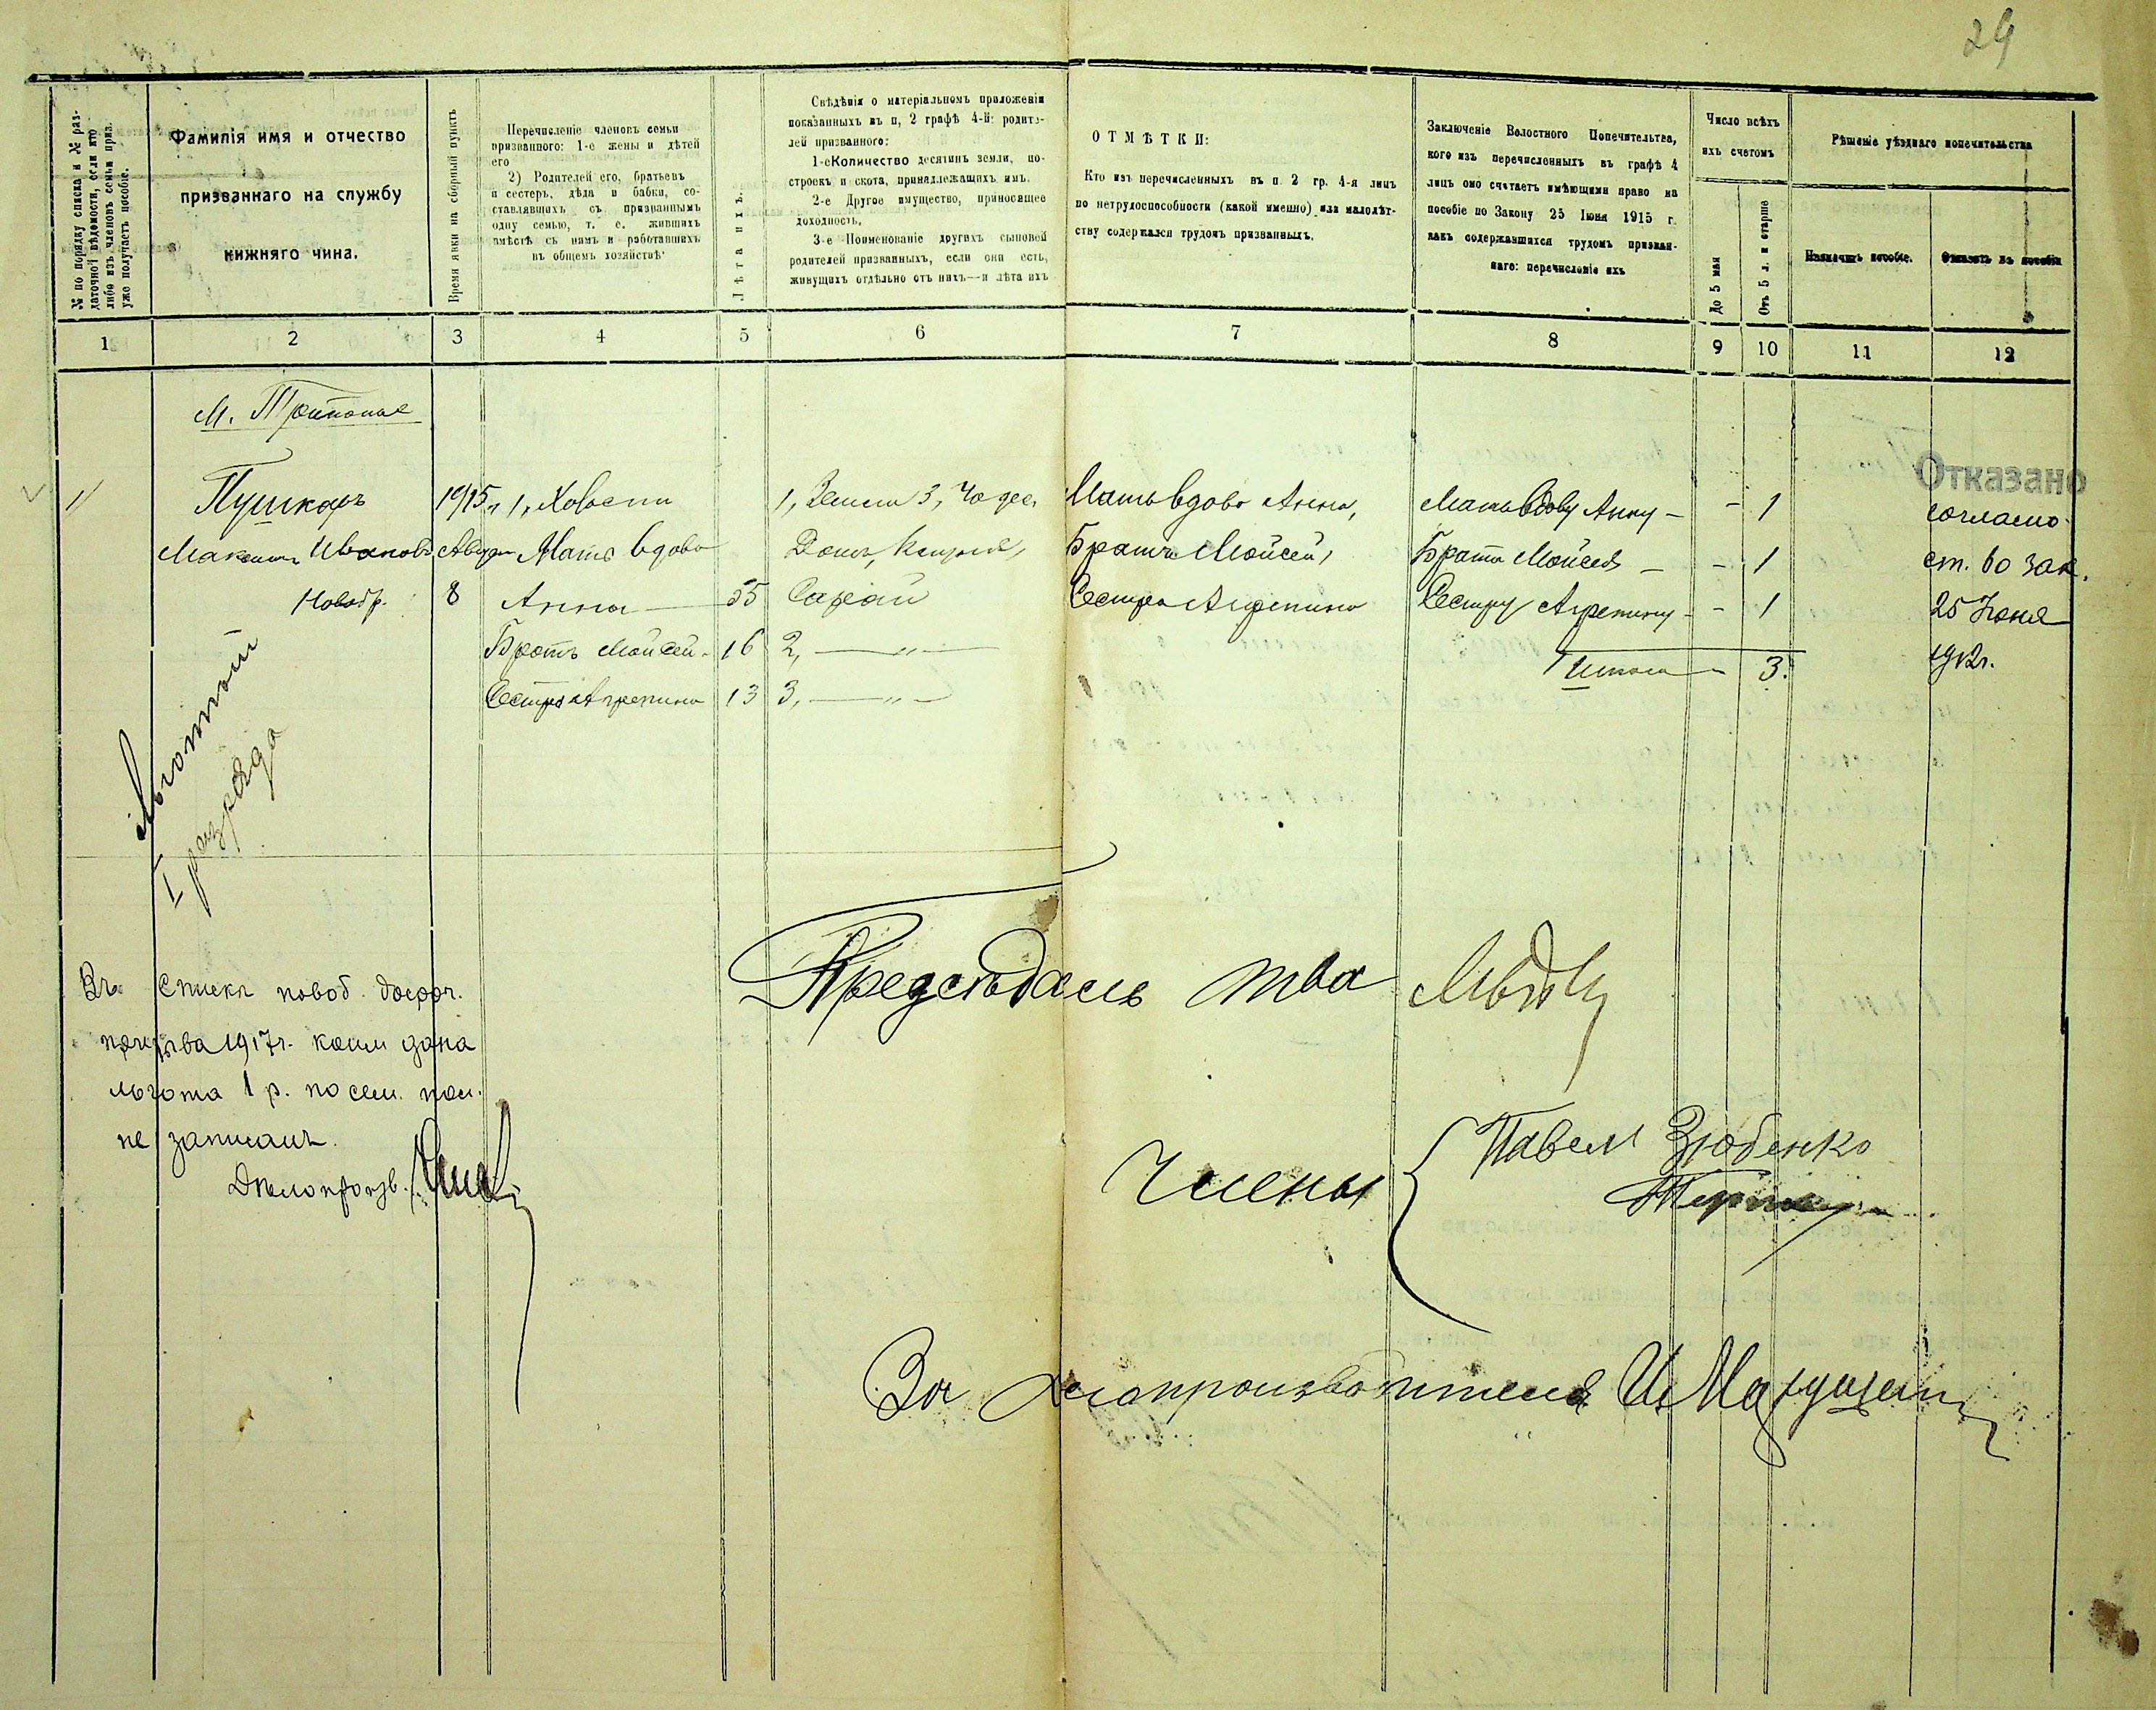 29
№ по порядку списка и № раз-
даточной вѣдомости, если кто
либо изъ членовъ семьи приз.
уже получаетъ пособіе.
Фамилія имя и отчество
призваннаго на службу
нижняго чина.
Время явки на сборный пунктъ
Перечисленіе членовъ семьи
призваннаго: 1-е жены и дѣтей
его
2) Родителей его, братьевъ
и сестеръ, дѣда и бабки, со-
ставлявшихъ съ призваннымъ
одну семью, т. е. жившихъ
вмѣстѣ съ нимъ и работавшихъ
въ общемъ хозяйствѣ
Лѣта ихъ.
Свѣдѣнія о матеріальномъ приложеніи
показанныхъ въ п, 2 графѣ 4-й: родите-
лей призванного:
1-е Количество десятинъ земли, по-
строекъ и скота, принадлежащихъ имъ.
2-е Другое имущество, приносящее
доходность,
3-е Поименованіе другихъ сыновей
родителей призванныхъ, если они есть,
живущихъ отдѣльно отъ нихъ—и лѣта ихъ
ОТМѢТКИ:
Кто изъ перечисленныхъ въ п. 2 гр. 4-я лицъ
по нетрудоспособности (какой именно) или малолѣт-
ству содержался трудомъ призванныхъ.
Заключеніе Волостного Попечительтва,
кого изъ перечисленныхъ въ графѣ 4
лицъ оно считаетъ имѣющими право на
пособіе по Закону 25 Іюня 1915 г.
какъ содержавшихся трудомъ призван-
наго: перечисленіе ихъ
Число всѣхъ
ихъ счетомъ
До 5 мая
Отъ 5 л. и старше
Рѣшеніе уѣзднаго попечительства
Назначить пособіе.
Отказать въ пособіи
1 2 3 4 5 6 7 8 9 10 11 12
1/ Пушкарь 1915, 1, Холости 1, Земли 3, 40 дес. Мать вдова Анна, Мать вдову Анну — - 1 Отказано
согласно
Максимъ Ивановъ Август Мать вдова Домъ, Брата Мойсей, Брата Мойсея — - 1 ст. 60 зак.
Новобр. 8 Анна — 55 Сарай Сестра Агрепина Сестру Агрепину - - 1 25 Іюня
Братъ Мойсей - 16 2, — " — Итого - 3. 1912г.
Сестра Агрепина 13 3, — " —
Льготный
I разряда
Въ списки новоб. досроч.
призыва 1917г. коим дана
льгота 1 р. по сем. пол.
не записанъ.
Дѣлопроизв.
Предсѣдатель тва
Члены { Павелъ Зюбенко
За дѣлопроизводителя И.